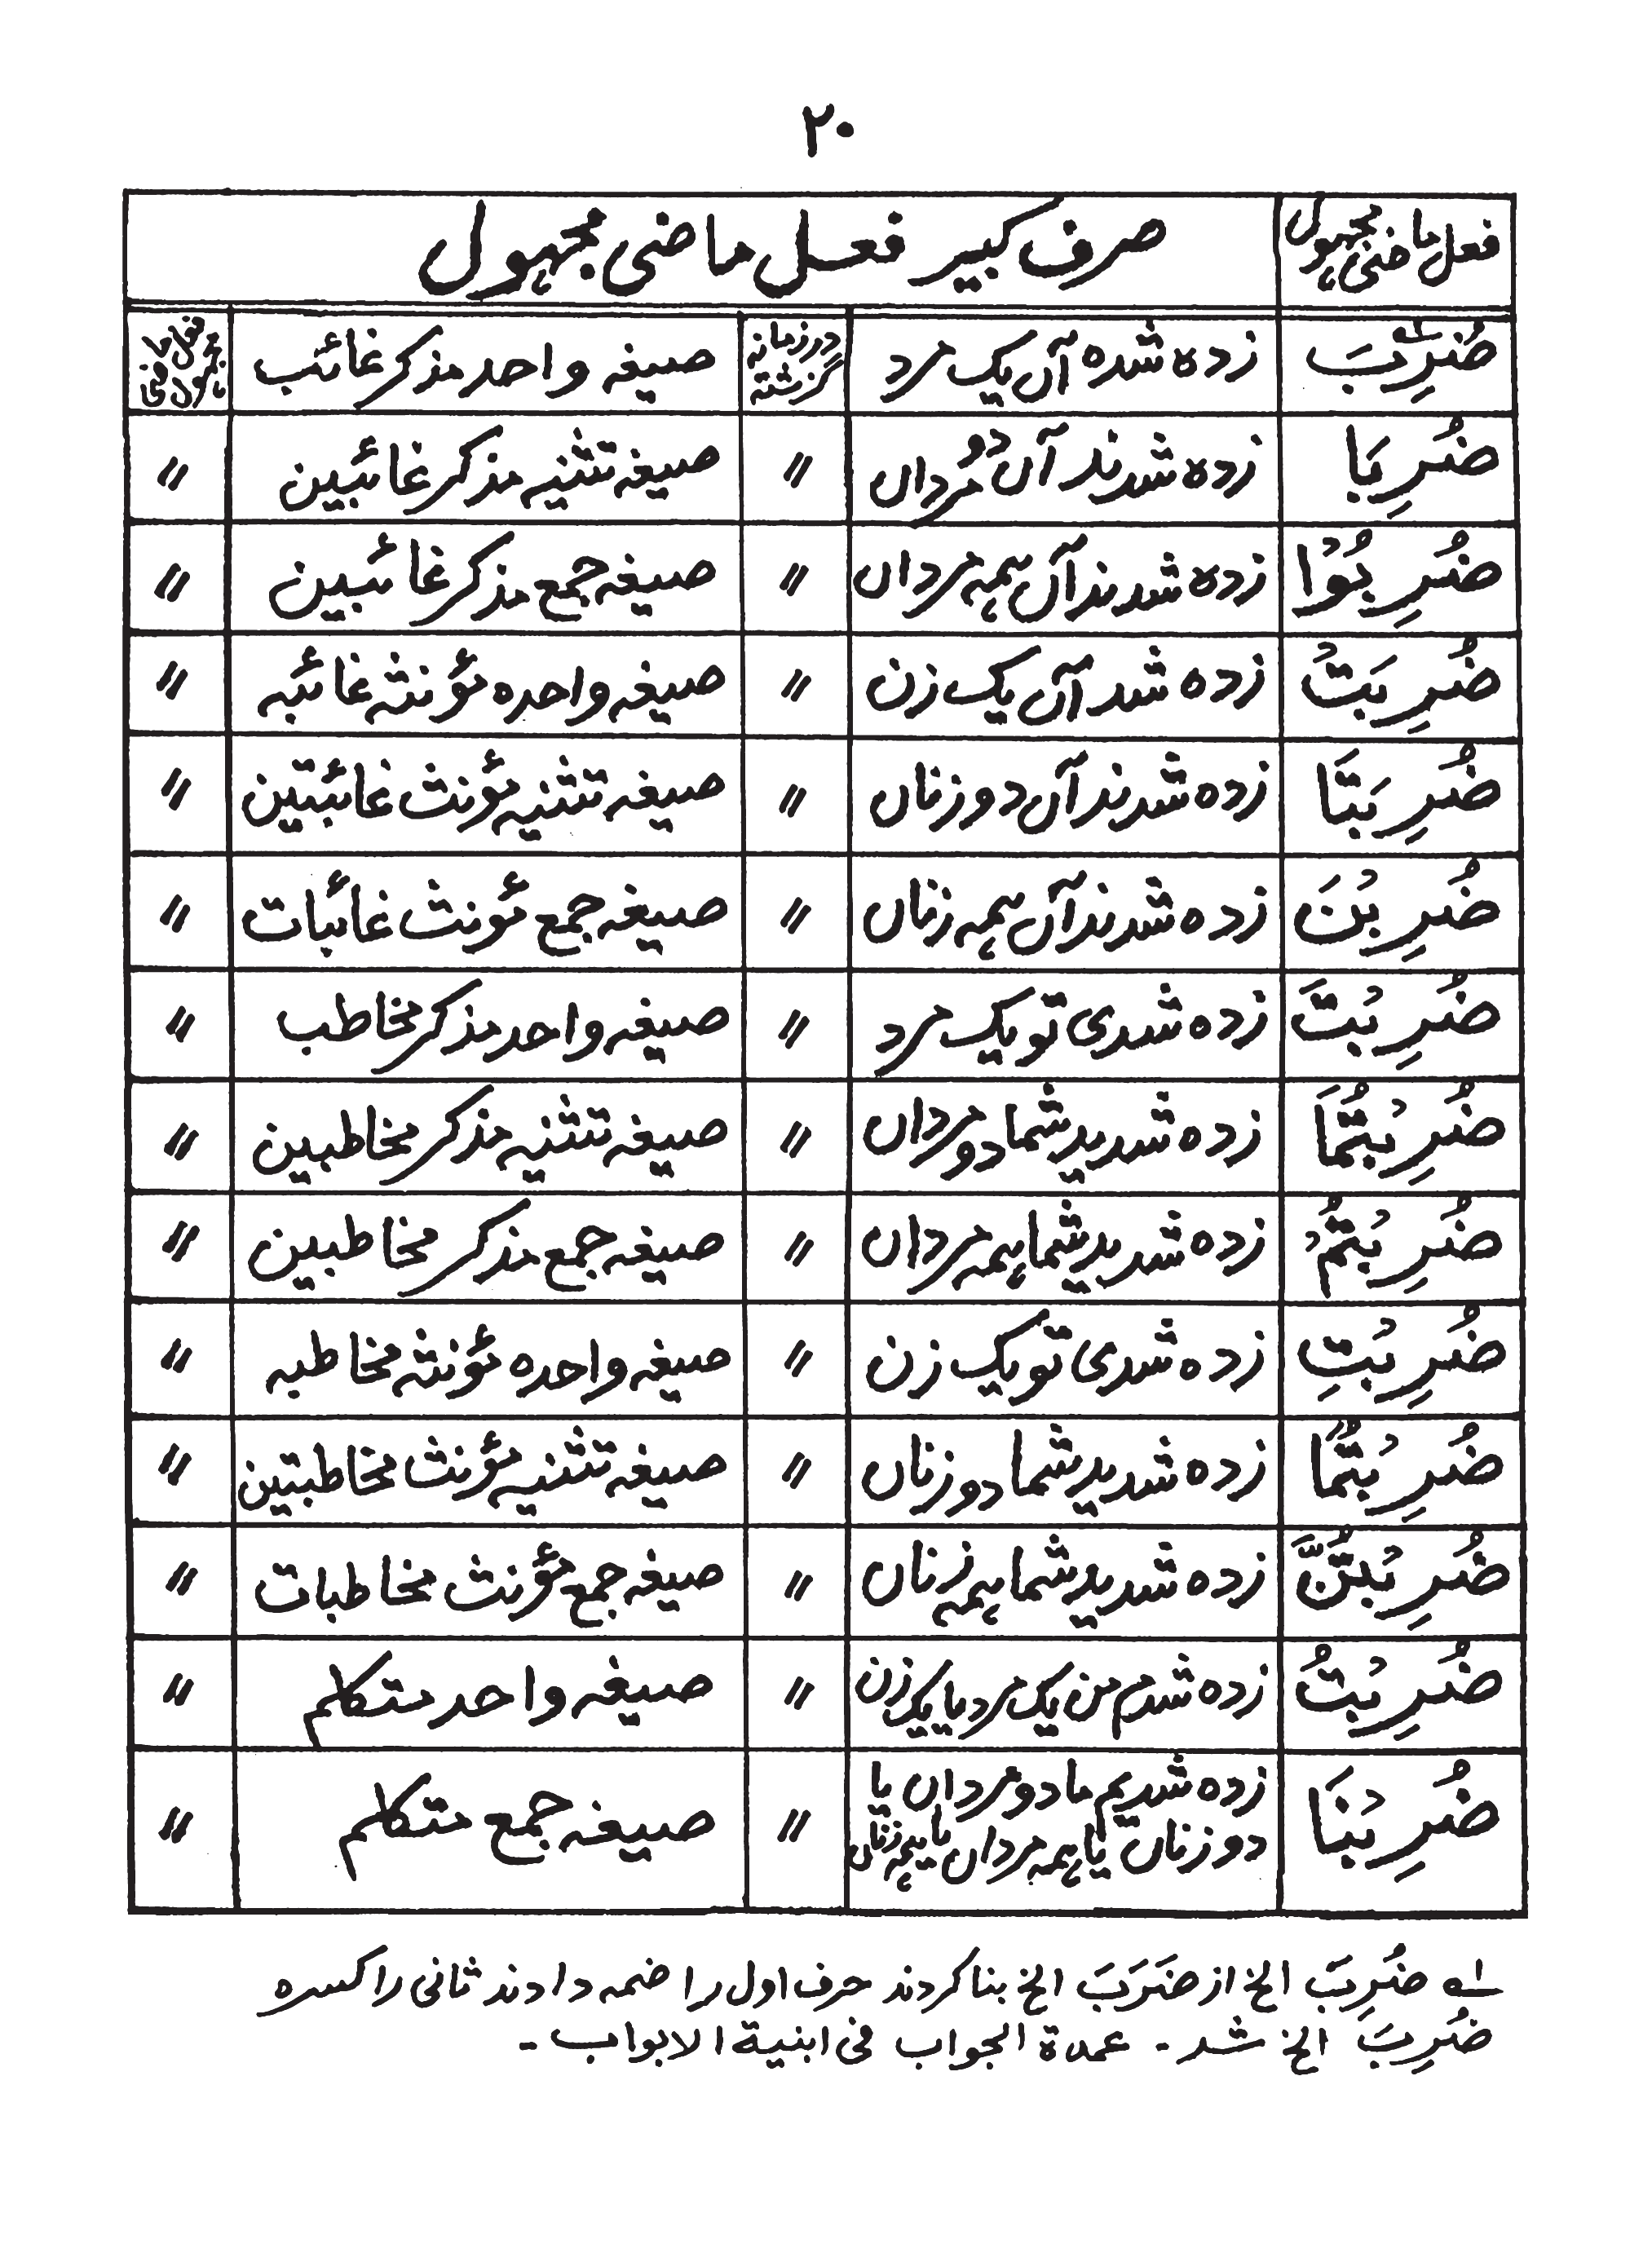 ۲۰
فعل ماضی مجہول صرف کبیر فعل ماضی مجہول
ضُرِبَ زدہ شدہ آں یک مرد در زمانہ گزشتہ صیغہ واحد مذکر غائب فعل ماضی مجہول
ضُرِبَا زدہ شدند آں دو مُرداں // صیغہ تثنیہ مذکر غائبین //
ضُرِبُوْا زدہ شدند آں ہمہ مرداں // صیغہ جمع مذکر غائبین //
ضُرِبَتْ زدہ شد آں یک زن // صیغہ واحدہ مؤنثہ غائبہ //
ضُرِبَتَا زدہ شدند آں دو زناں // صیغہ تثنیہ مؤنث غائبتین //
ضُرِبْنَ زدہ شدند آں ہمہ زناں // صیغہ جمع مؤنث غائبات //
ضُرِبْتَ زدہ شدی تو یک مرد // صیغہ واحد مذکر مخاطب //
ضُرِبْتُمَا زدہ شدید شما دو مرداں // صیغہ تثنیہ مذکر مخاطبین //
ضُرِبْتُمْ زدہ شدید شما ہمہ مرداں // صیغہ جمع مذکر مخاطبین //
ضُرِبْتِ زدہ شدی تو یک زن // صیغہ واحدہ مؤنثہ مخاطبہ //
ضُرِبْتُمَا زدہ شدید شما دو زناں // صیغہ تثنیہ مؤنث مخاطبتین //
ضُرِبْتُنَّ زدہ شدید شما ہمہ زناں // صیغہ جمع مؤنث مخاطبات //
ضُرِبْتُ زدہ شدم من یک مرد یا یک زن // صیغہ واحد متکلم //
ضُرِبْنَا زدہ شدیم ما دو مرداں یا
دو زناں یا ہمہ مرداں یا ہمہ زناں // صیغہ جمع متکلم //
؂۱ ضُرِبَ الخ از ضَرَبَ الخ بنا کردند حرف اول را ضمہ دادند ثانی را کسرہ
ضُرِبَ الخ شد ۔ عمدۃ الجواب فی ابنیۃ الابواب ۔